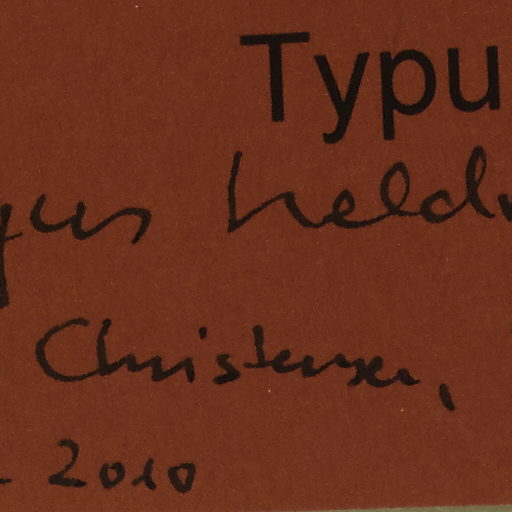 Typu
gus heldr
Christensen,
- 2010